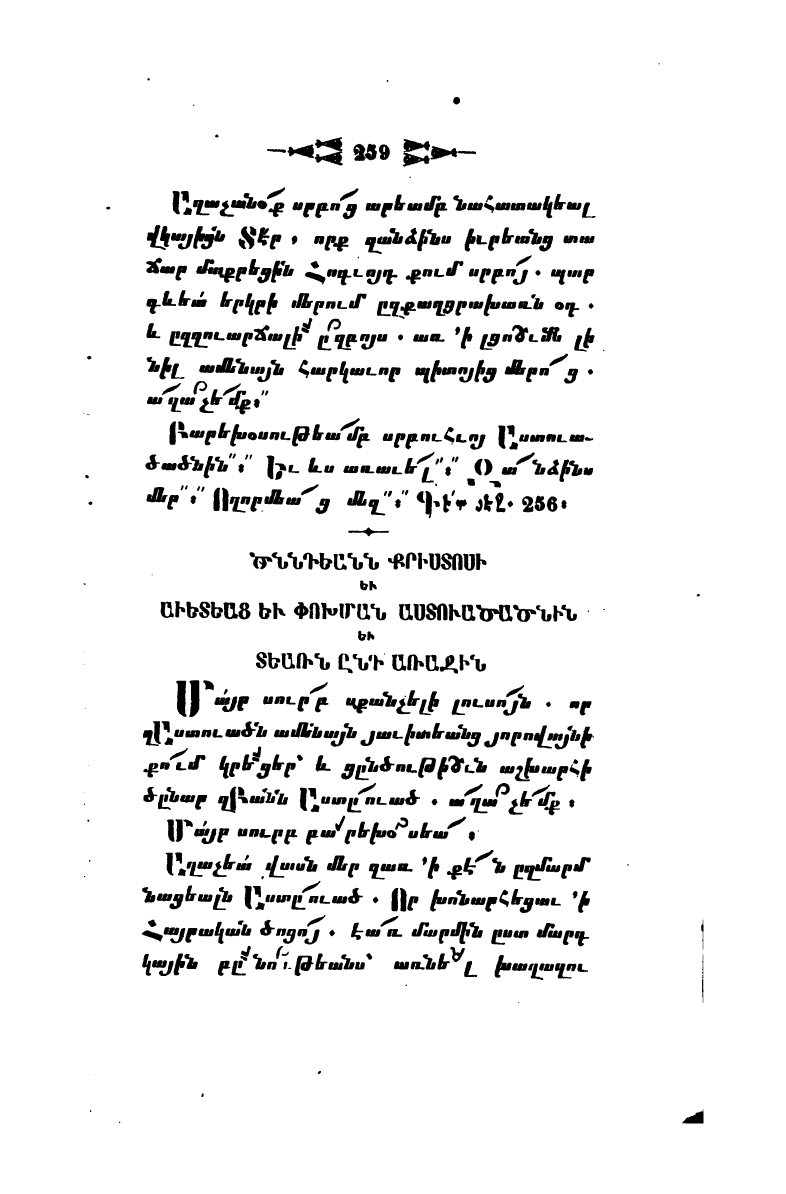 259
Աղաչանօ՜ք սրբո՜ց արեամբ նահատակեալ
վկայիցն Տէր , որք զանձինս իւրեանց տա
ճար մաքրեցին Հոգւոյդ քում սրբո՜յ . պար
գևեա՛ երկրի մերում ըզքաղցրախառն օդ .
և ըզզուարճալի ըզբոյս . առ ՚ի լցումն լի
նիլ ամենայն հարկաւոր պիտոյից մերո՜ց .
ա՜ղաչե՜մք։
Բարեխօսութեա՜մբ սրբուհւոյ Աստուա-
ծածնին։ Եւ ևս առաւե՜լ։ Զա՜նձինս
մեր։ Ողորմեա՜ց մեզ։ Գի՛տ յէջ. 256։
ԾՆՆԴԵԱՆՆ ՔՐԻՍՏՈՍԻ
ԵՒ
ԱՒԵՏԵԱՑ ԵՒ ՓՈԽՄԱՆ ԱՍՏՈՒԱԾԱԾՆԻՆ
ԵՒ
ՏԵԱՌՆ ԸՆԴ ԱՌԱՋԻՆ
Մայր սուրբ սքանչելի լուսո՜յն . որ
զԱստուածն ամենայն յաւիտեանց յորովայնի
քո՜ւմ կրեցեր՝ և ցընծութիւն աշխարհի
ծընար զԲանն Աստը՜ուած . ա՜ղաչե՜մք ։
Մայր սուրբ բարեխօսեա՜ ։
Աղաչեա՛ վասն մեր զառ ՚ի քէ՜ն ըզմարմ
նացեալն Աստը՜ուած . Որ խոնարհեցաւ ՚ի
Հայրական ծոցո՜յ . էա՜ռ մարմին ըստ մարդ
կային բընութեանս՝ առնել խաղաղու